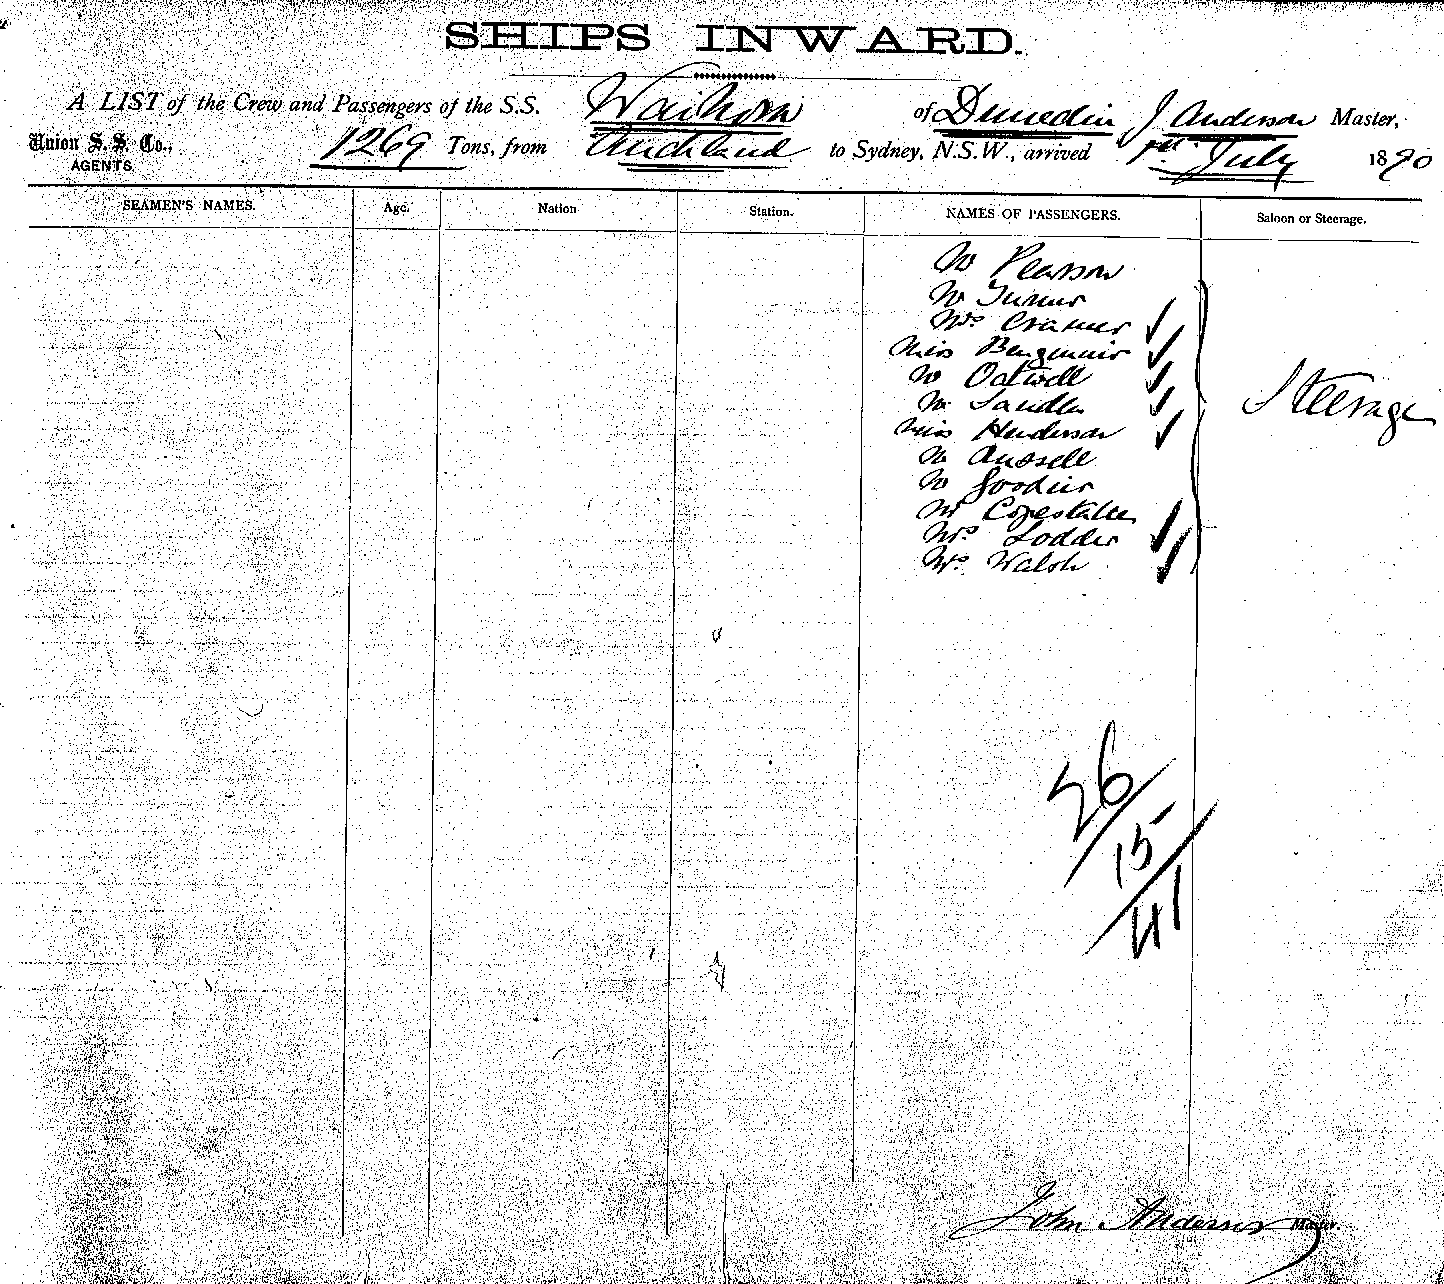 SHIPS INWARD.
A LIST of the Crew and Passengers of the S.S. Waihora of Dunedin J Anderson Master,
Union S. S. Co., 1269 Tons, from Auckland to Sydney, N.S.W., arrived July 1890
AGENTS
SEAMEN'S NAMES. Age. Nation Station. NAMES OF PASSENGERS. Saloon or Steerage.
Mr Pearson
Mr Turner
Mrs Cramer
Miss
Mr Oatwell
Mr Sandler Steerage
Miss Henderson
Mr
Mr Goodier
Mr Copestake
Mrs Lodder
Mrs Walsh
26
15
41
John Anderson Master.